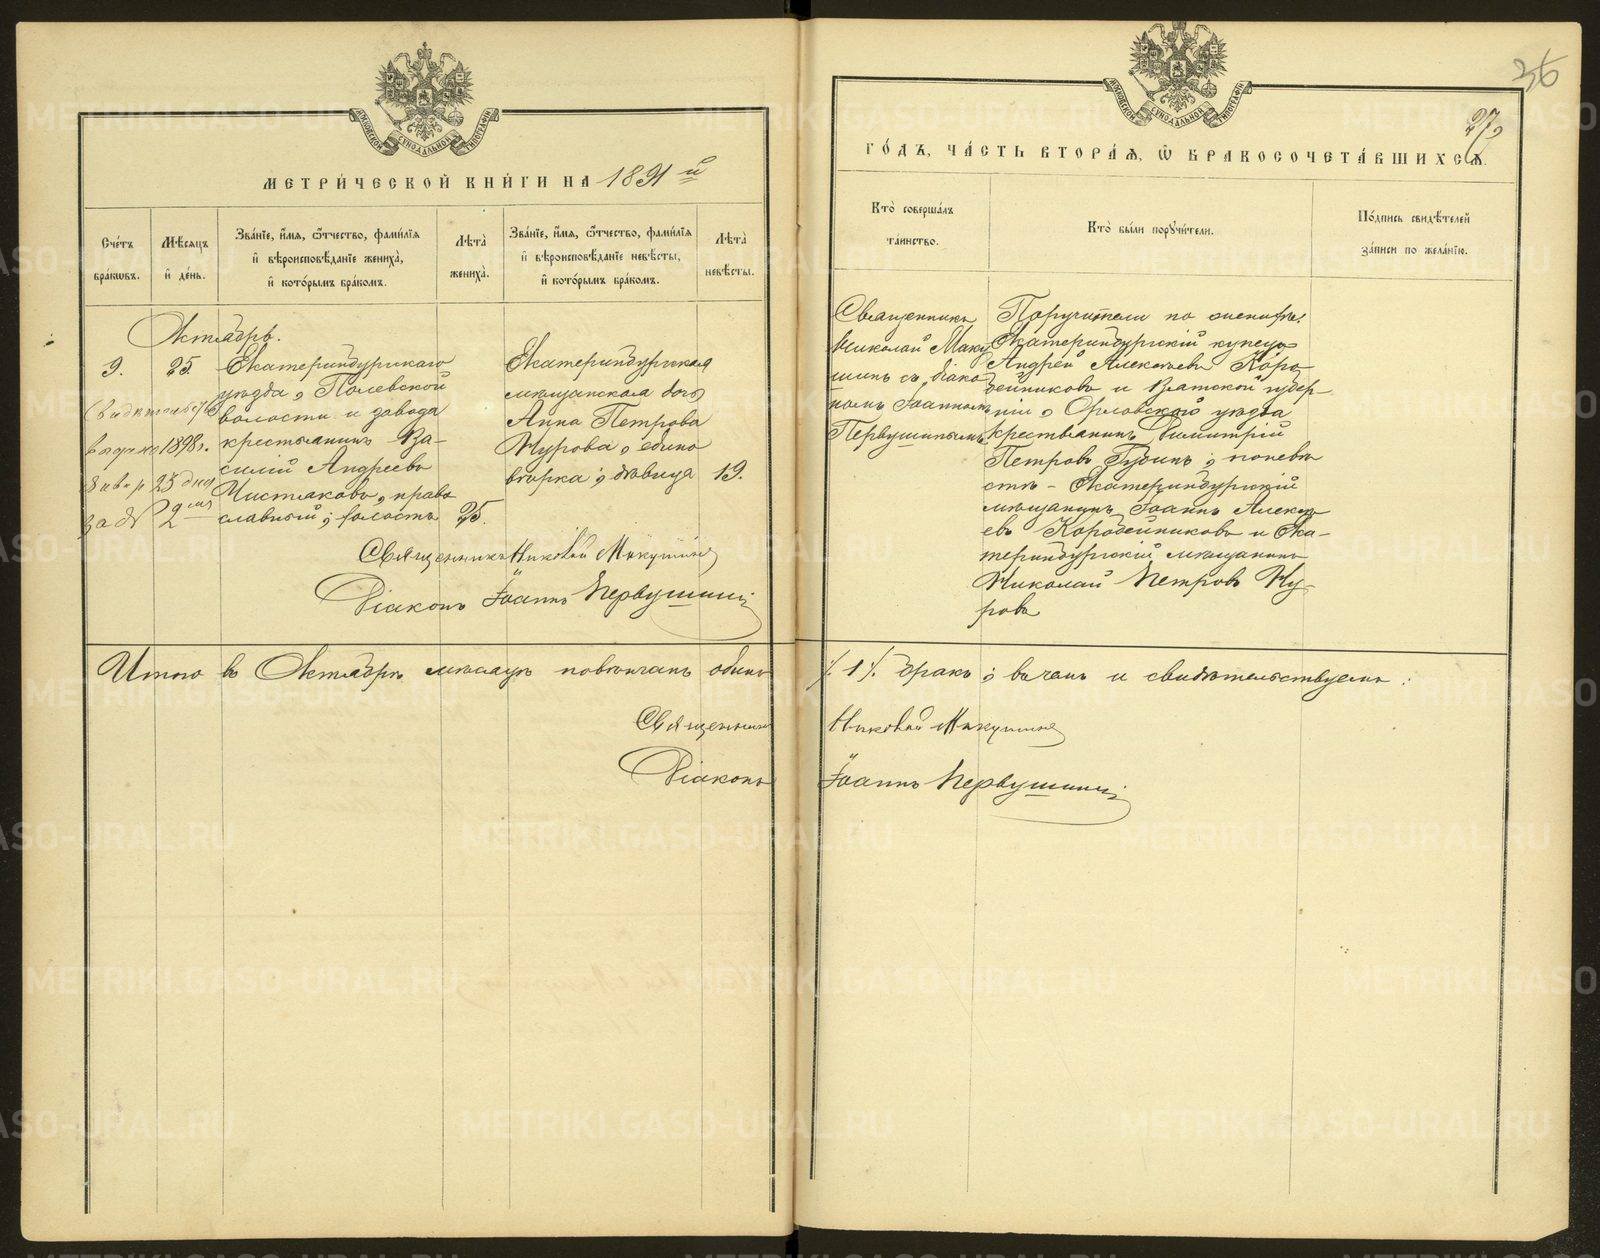 МЕТРИ́ЧЕСКОЙ КНИ́ГИ НА 1891й
Сче́тъ бра́кѡвъ.
Мѣ́сѧцъ и҆ де́нь.
Зва́нїе, и҆́мѧ, ѻ҆́тчество, фами́лїѧ и҆ вѣроисповѣ́данїе жениха̀, и҆ кото́рымъ бра́комъ.
Лѣ́та жениха̀.
Зва́нїе, и҆́мѧ, ѻ҆́тчество, фами́лїѧ и҆ вѣроисповѣ́данїе невѣ́сты, и҆ кото́рымъ бра́комъ.
Лѣ́та невѣ́сты.
Октябрь.
9.
25
1898 г.
25 дня
за №
Екатеринбургскаго
уѣзда, Полевской
волости и завода
крестьянинъ Ва-
силій Андреевъ
Чистяковъ, право
славный; холостъ
25.
Екатеринбургская
мѣщанская дочь
Анна Петрова
Журова, едино
вѣрка; дѣвица
19.
Священникъ Николай Микушинъ
Діаконъ Іоаннъ Первушинъ
Итого въ Октябрѣ мѣсяцѣ повѣнчанъ одинъ
Священникъ
Діаконъ
36
27
ГО́ДЪ, ЧА́СТЬ ВТОРА́Ѧ, Ѽ БРАКОСОЧЕТА́ВШИХСѦ.
Кто̀ соверша́лъ та́инство.
Кто̀ бы́ли порꙋчи́тели.
По́дпись свидѣ́телей за́писи по жела́нїю.
Священникъ
Николай Мику
шинъ съ діако
номъ Іоанномъ
Первушинымъ
Поручители по женихѣ:
Екатеринбургскій купецъ
Андрей Алексѣевъ Коро
бейниковъ и Вятской губер-
ніи, Орловскаго уѣзда
крестьянинъ Димитрій
Петровъ Губинъ; по невѣ
стѣ - Екатеринбургскій
мѣщанинъ Іоаннъ Алексѣ
евъ Коробейниковъ и Ека-
теринбургскій мѣщанинъ
Николай Петровъ Жу-
ровъ
/.1/. бракъ; въ чемъ и свидѣтельствуемъ:
Николай Микушинъ
Іоаннъ Первушинъ
METRIKI.GASO-URAL.RU